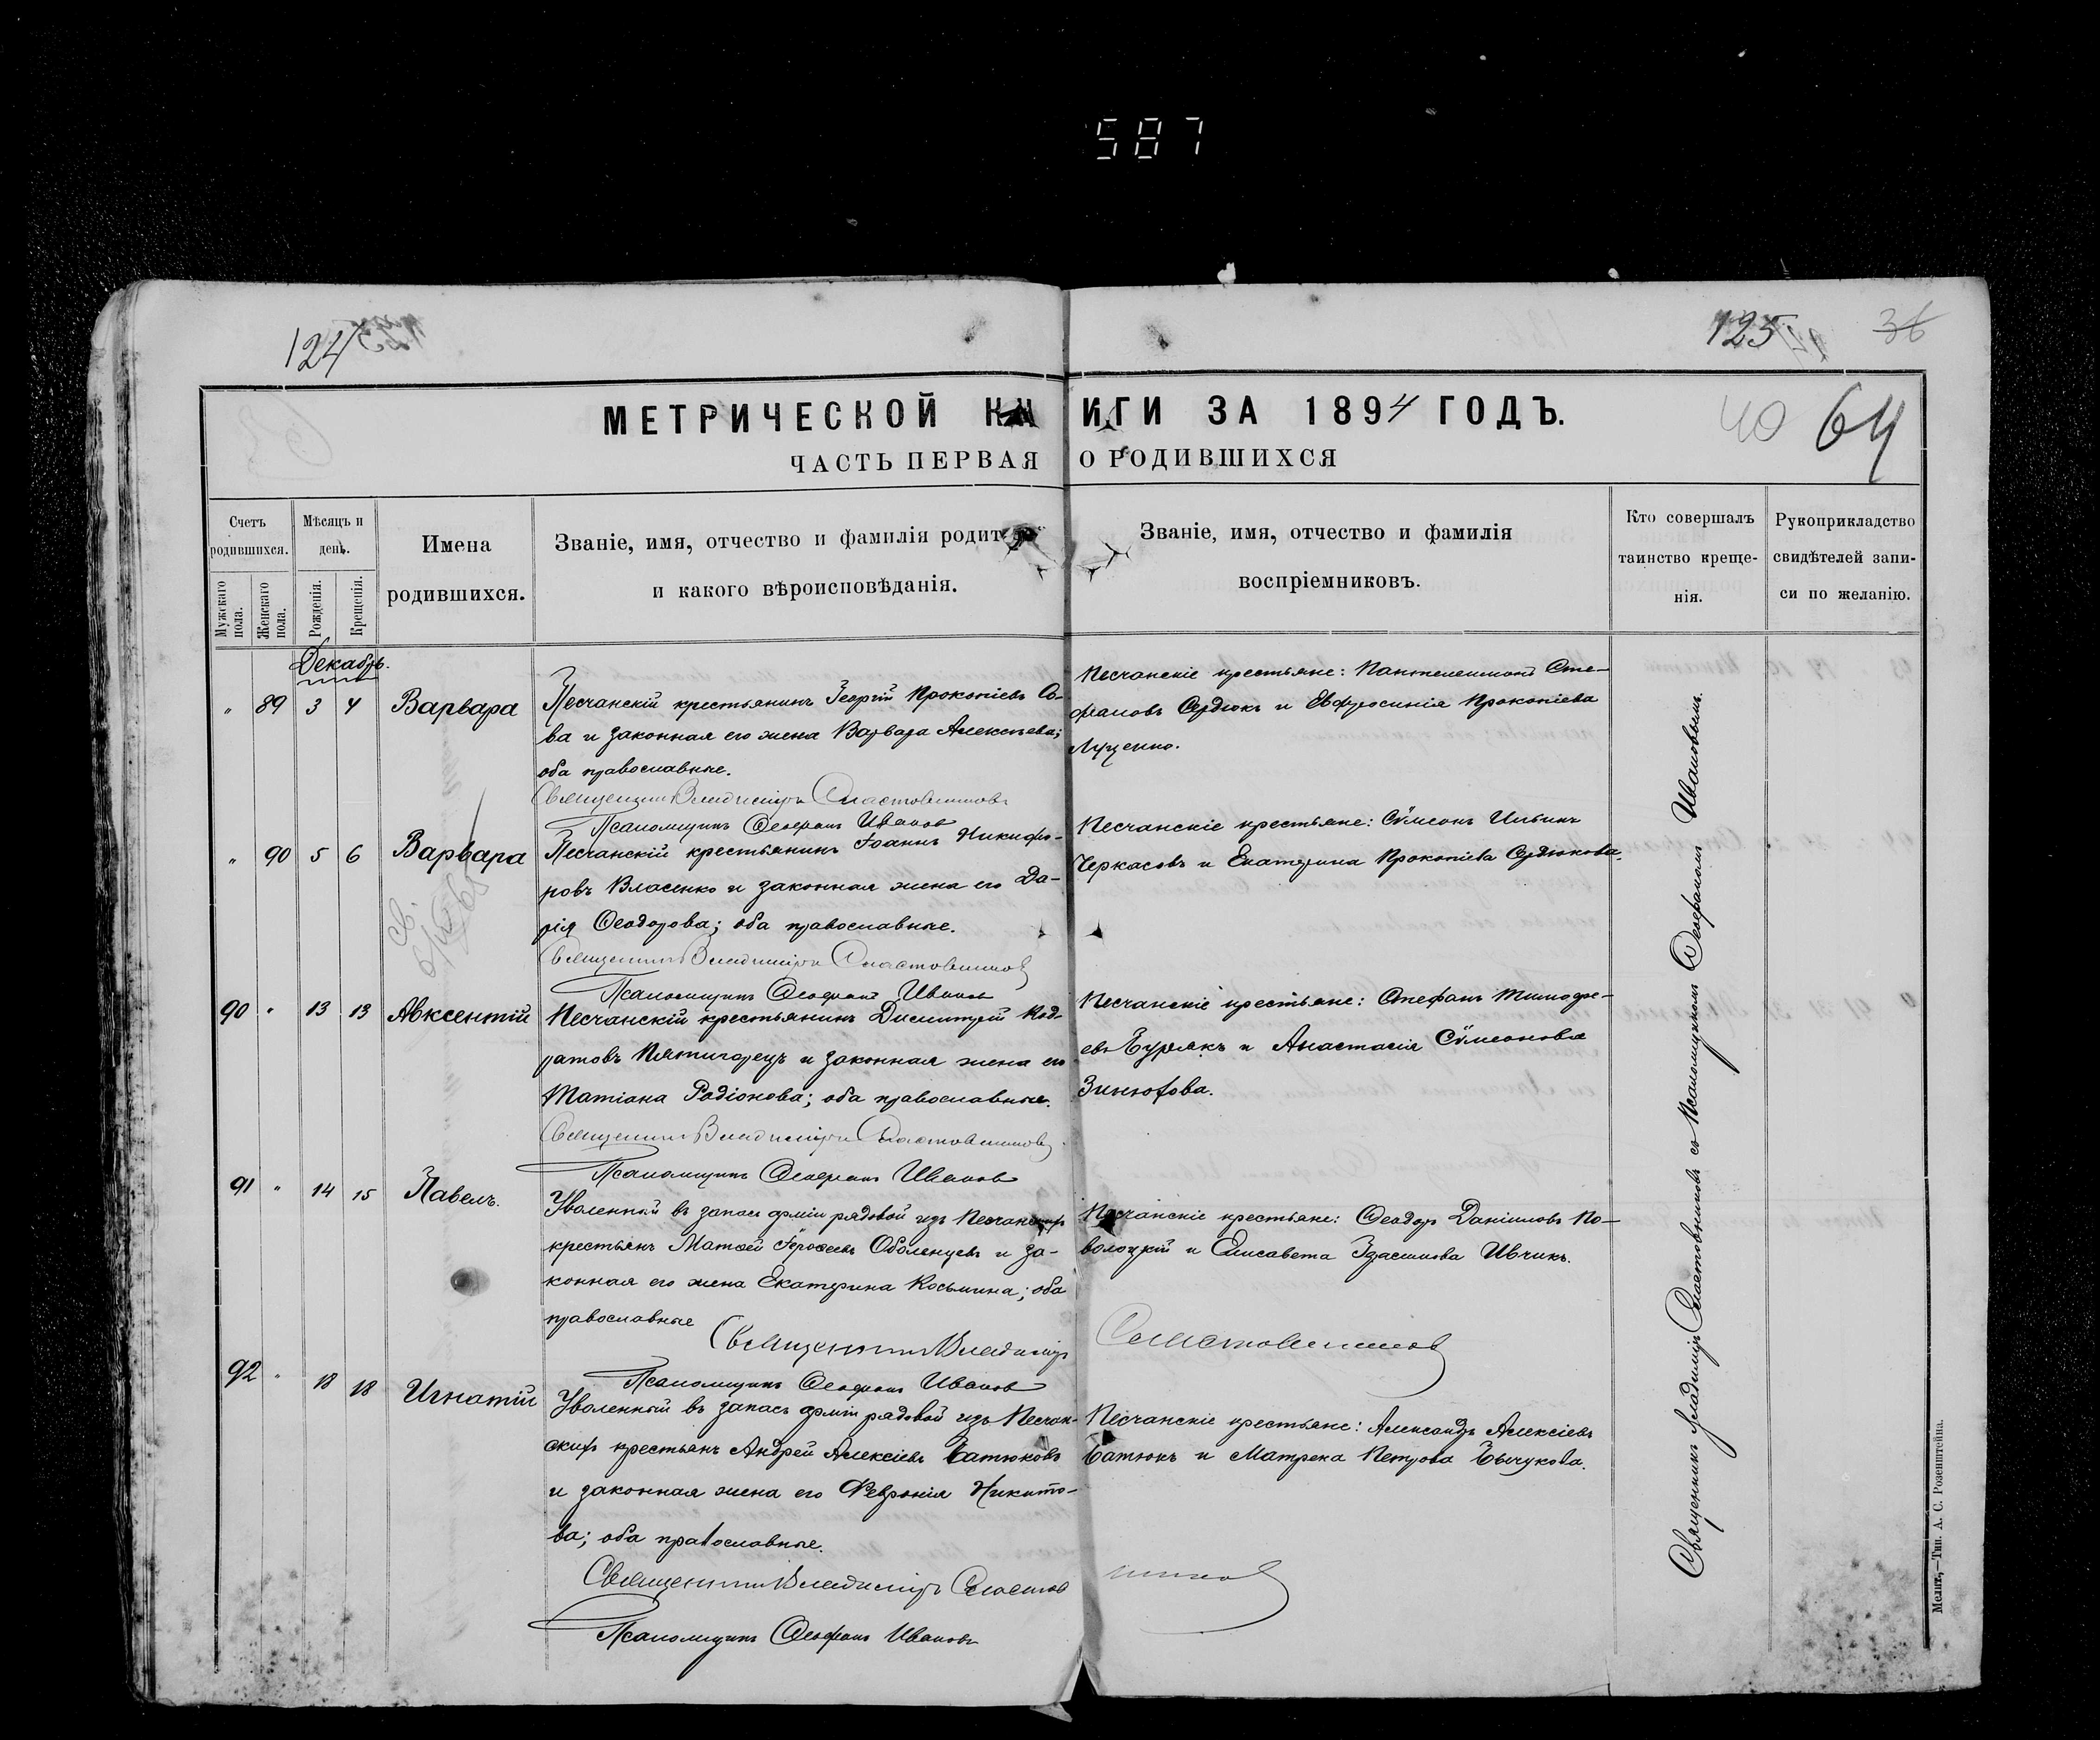 587
124
125
36
МЕТРИЧЕСКОЙ КНИГИ ЗА 1894 ГОДЪ.
40 64
ЧАСТЬ ПЕРВАЯ О РОДИВШИХСЯ
Счетъ родившихся.
Мужскаго пола.
Женскаго пола.
Мѣсяцъ и день.
Рожденія.
Крещенія.
Имена родившихся.
Званіе, имя, отчество и фамилія родит
и какого вѣроисповѣданія.
Званіе, имя, отчество и фамилія
воспріемниковъ.
Кто совершалъ
таинство креще-
нія.
Рукоприкладство
свидѣтелей запи-
си по желанію.
Декабрь.
" 89 3 4 Варвара
Песчанскій крестьянинъ Георгій Прокопіевъ Со-
ва и законная его жена Варвара Алексѣева;
оба православные.
Священникъ Владиміръ Сластовниковъ
Псаломщикъ Ѳеофанъ Ивановъ
Песчанскіе крестьяне: Пантелеимонъ Сте-
фановъ Сердюкъ и Евфросинія Прокопіева
Луценко.
" 90 5 6 Варвара
св.
Песчанскій крестьянинъ Іоаннъ Никифо-
ровъ Власенко и законная жена его Да-
рія Ѳеодорова; оба православные.
Священникъ Владиміръ Сластовниковъ
Псаломщикъ Ѳеофанъ Ивановъ
Песчанскіе крестьяне: Сѵмеонъ Ильинъ
Черкасовъ и Екатерина Прокопіева Сердюкова.
90 " 13 13 Авксентій
Песчанскій крестьянинъ Димитрій Код-
ратовъ Пятигорецъ и законная жена его
Татіана Родіонова; оба православные.
Священникъ Владиміръ Сластовниковъ
Псаломщикъ Ѳеофанъ Ивановъ
Песчанскіе крестьяне: Стефанъ Тимофе-
евъ Бурлакъ и Анастасія Сѵмеонова
91 " 14 15 Павелъ.
Уволенный въ запасъ арміи рядовой изъ Песчанскихъ
крестьянъ Матѳей Іероѳеевъ Оболенцевъ и за-
конная его жена Екатерина Косьмина; оба
православные
Священникъ Владиміръ Сластовниковъ
Псаломщикъ Ѳеофанъ Ивановъ
Песчанскіе крестьяне: Ѳеодоръ Даніиловъ По-
волоцкій и Елисавета Ивчикъ.
92 " 18 18 Игнатій
Уволенный въ запасъ арміи рядовой изъ Песчан-
скихъ крестьянъ Андрей Алексіевъ Батюковъ
и законная жена его Февронія Никито-
ва; оба православные.
Священникъ Владиміръ Сластовниковъ
Псаломщикъ Ѳеофанъ Ивановъ
Песчанскіе крестьяне: Александръ Алексіевъ
Батюкъ и Матрена Петрова Бычукова.
Священникъ Владиміръ Сластовниковъ съ Псаломщикомъ Ѳеофаномъ Ивановымъ.
Мелит,—Тип. А. С. Розенштейна.